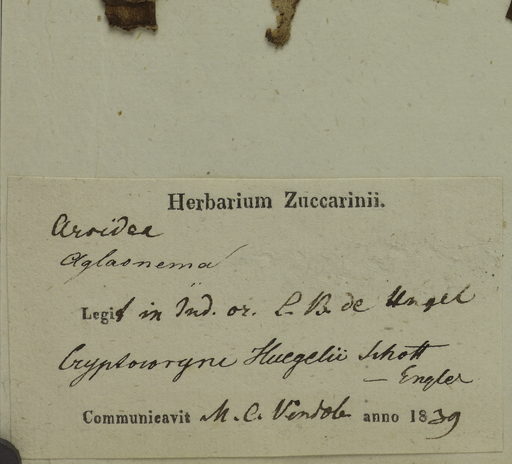 Herbarium Zuccarinii.
Aroidea
Aglaonema
Legit in Ind. or. L. B. de
Cryptocoryne Huegelii Schott
— Engler
Communicavit M. C. Vindob anno 1839